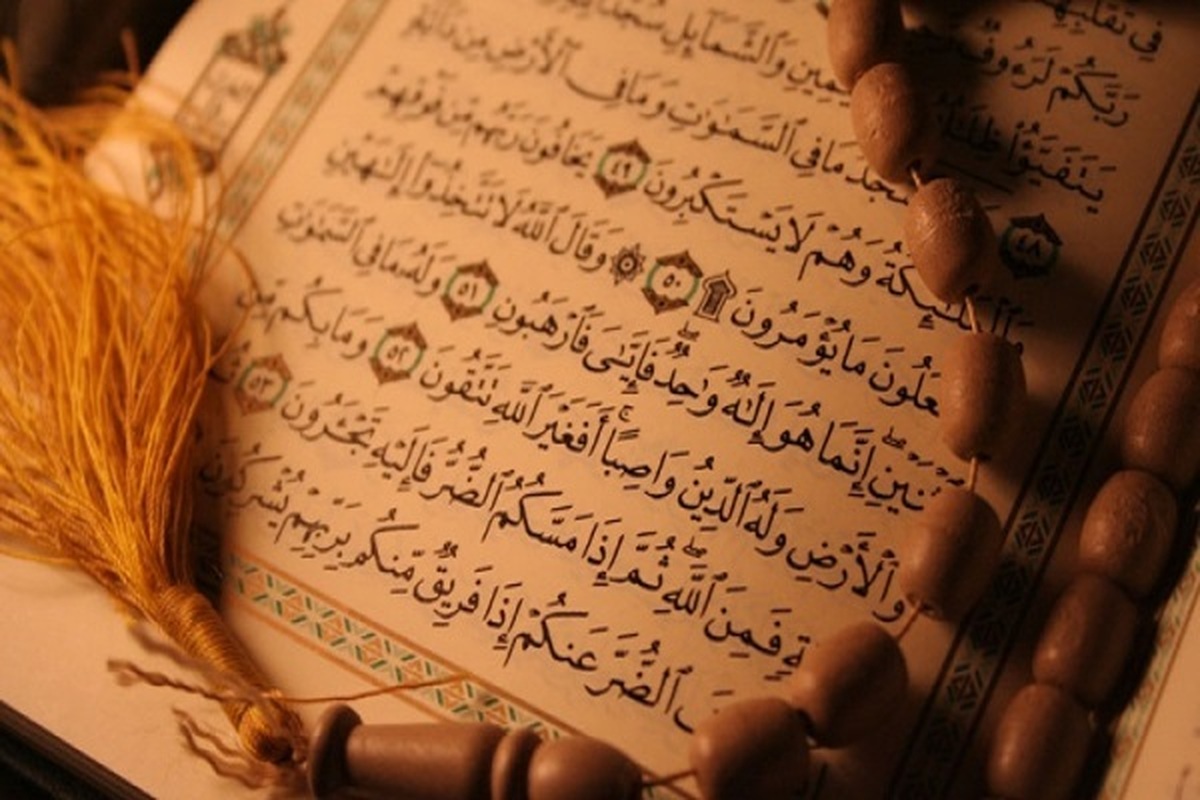 فِي تَقَلُّبِهِمْ
رَبَّكُمْ لَرَءُوفٌ
يَتَفَيَّؤُا۟ ظِلَٰلُهُۥ ٱلْيَمِينِ وَٱلشَّمَآئِلِ سُجَّدًا
٤٨ يَسْجُدُ مَا فِي ٱلسَّمَٰوَٰتِ وَمَا فِي ٱلْأَرْضِ مِن دَآبَّةٍ
وَٱلْمَلَٰٓئِكَةُ وَهُمْ لَا يَسْتَكْبِرُونَ ٤٩ يَخَافُونَ رَبَّهُم مِّن فَوْقِهِمْ
وَيَفْعَلُونَ مَا يُؤْمَرُونَ ۩ ٥٠ ۞ وَقَالَ ٱللَّهُ لَا تَتَّخِذُوٓا۟ إِلَٰهَيْنِ
ٱثْنَيْنِ إِنَّمَا هُوَ إِلَٰهٌ وَٰحِدٌ فَإِيَّٰىَ فَٱرْهَبُونِ ٥١ وَلَهُۥ مَا فِي ٱلسَّمَٰوَٰتِ
وَٱلْأَرْضِ وَلَهُ ٱلدِّينُ وَاصِبًا أَفَغَيْرَ ٱللَّهِ تَتَّقُونَ ٥٢ وَمَا بِكُم مِّن
نِّعْمَةٍ فَمِنَ ٱللَّهِ ثُمَّ إِذَا مَسَّكُمُ ٱلضُّرُّ فَإِلَيْهِ تَجْـَٔرُونَ ٥٣
ٱلضُّرَّ عَنكُمْ إِذَا فَرِيقٌ مِّنكُم بِرَبِّهِمْ يُشْرِكُونَ